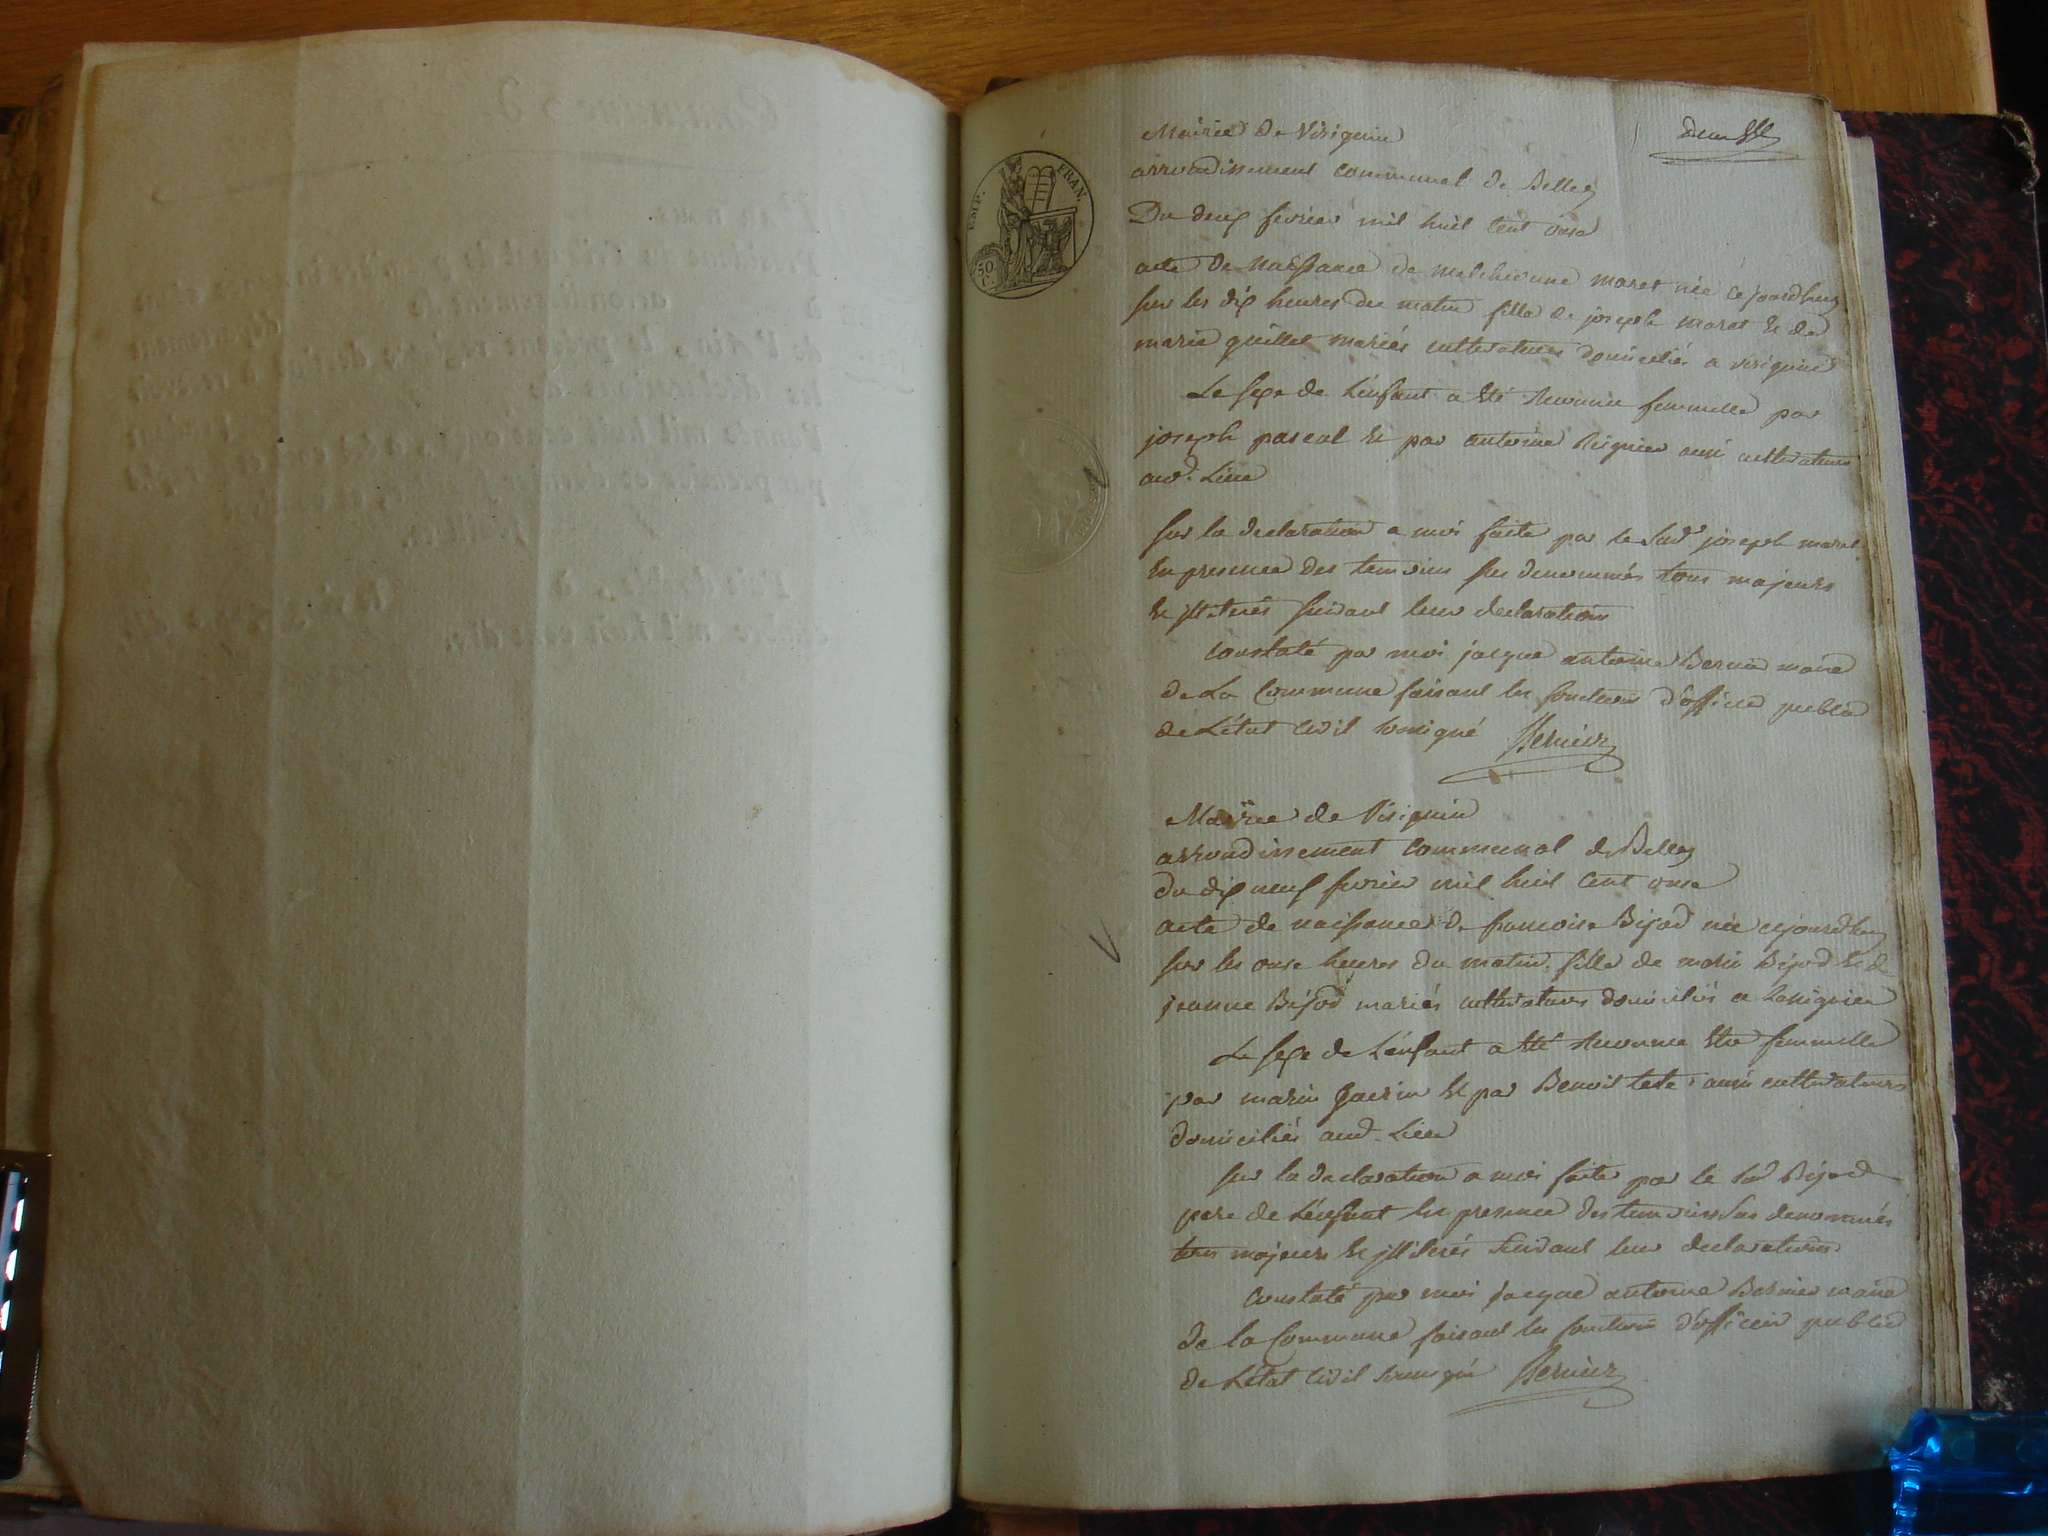 deux
EMP. FRAN.
50 C.
Mairie de Virignin
arrondissement communal de Belley
Du deux fevrier mil huit cent onse
acte de naissance de melchionne maret née cejourdhuy
sur les dix heures du matin fille de joseph maret et de
marie guillet mariés cultivateurs domiciliés a virignin
Le sexe de L'enfant a été reconnu femmelle par
joseph pascal et par antoine Reignier aussi cultivateurs
aud. Lieu
sur la declaration a moi faite par le sud joseph maret
En presence des temoins sus denommés tous majeurs
et jlliterés suivant leur declaration
constaté par moi jacque antoine Bernier maire
de La Commune faisant les fonctions d'officier public
de L'état Civil soussigné Bernier
Mairie de Virignin
arrondissement communal de Belley
du dix neuf fevrier mil huit cent onse
acte de naissance de francoise Bijod née cejourdhuy
sur les onse heures du matin fille de marin Bijod et de
jeanne Bijod mariés cultivateurs domiciliés a
Le sexe de L'enfant a été reconnu Etre femmelle
par marin Guerin et par Benoit tete aussi cultivateurs
domiciliés aud. Lieu
sur la declaration a moi faite par le sd Bijod
pere de L'enfant En presence des temoins sus denommés
tous majeurs et jlliterés suivant leur declaration
Constaté par moi jacque antoine Bernier maire
de la Commune faisant les fonctions d'officier public
de L'état Civil soussigné Bernier